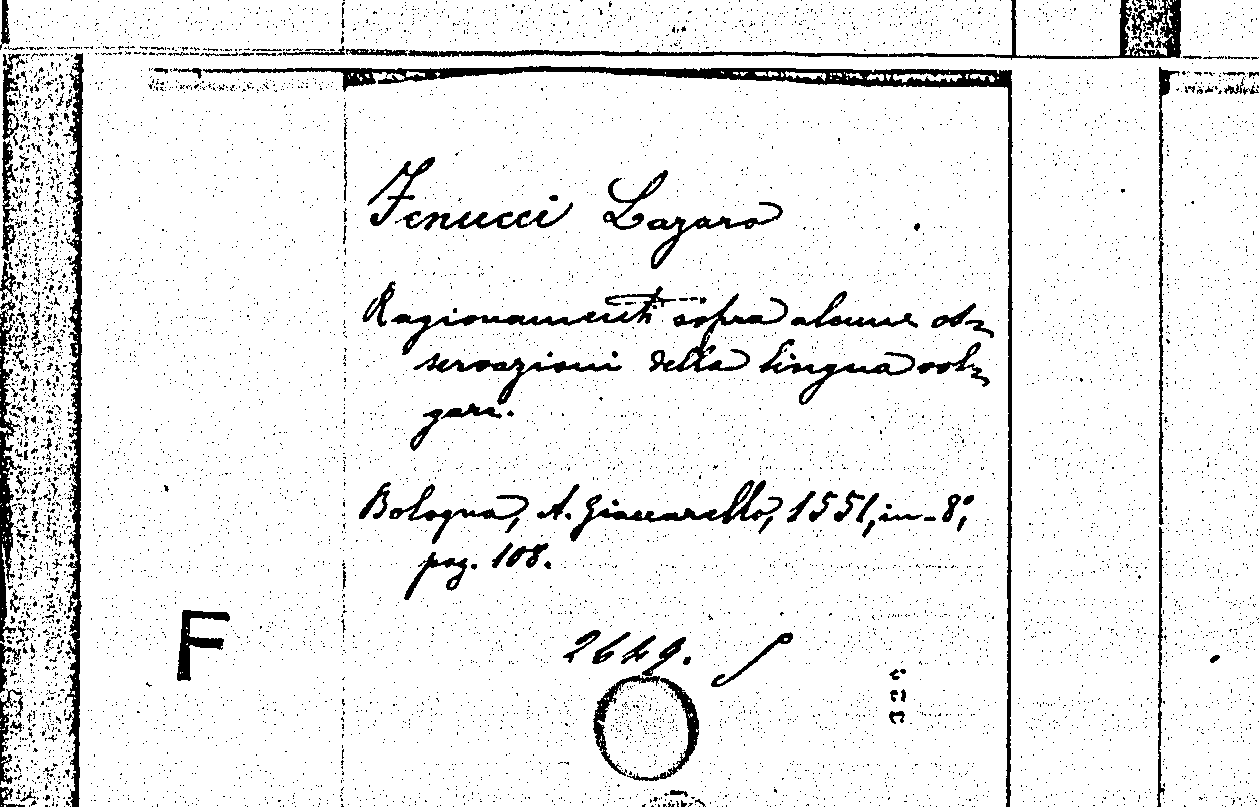 Fenucci Lazaro
Ragionamenti sopra alcune os=
servazioni della lingua vol=
gare.
Bologna, A. Giaccarello, 1551, in-8°,
pag. 108.
F
2649. S
329